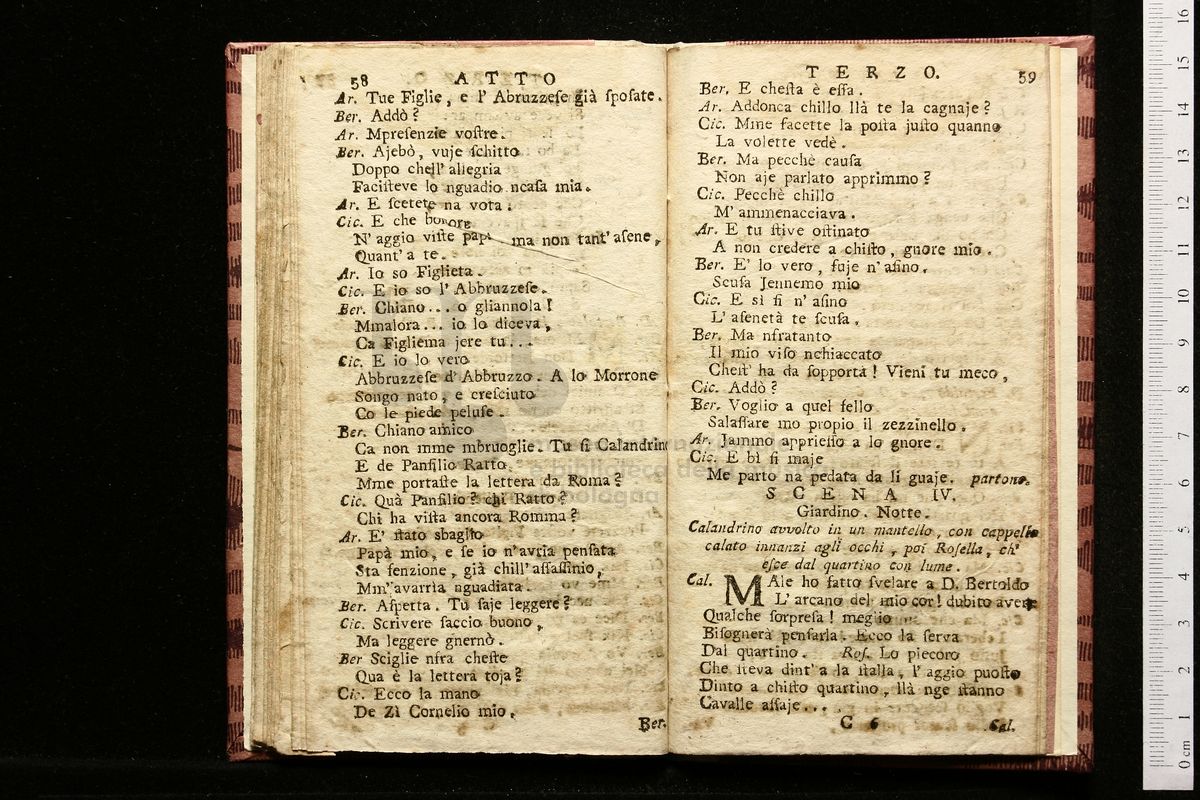 58 ATTO
Ar. Tue Figlie, e l' Abruzzeſe già ſpoſate.
Ber. Addò?
Ar. Mpreſenzie voſtre.
Ber. Ajebò, vuje ſchitto
Doppo chell' allegria
Faciſteve lo nguadio ncaſa mia.
Ar. E ſcetete na vota.
Cic. E che bonore
N' aggio viſte ma non tant' aſene,
Quant' a te.
Ar. Io so Figlieta.
Cic. E io so l' Abbruzzeſe.
Ber. Chiano... o gliannola!
Mmalora... io lo diceva,
Ca Figliema jere tu...
Cic. E io lo vero
Abbruzzeſe d' Abbruzzo. A lo Morrone
Songo nato, e creſciuto
Co le piede peluſe.
Ber. Chiano amico
Ca non mme mbruoglie. Tu ſi Calandrino
E de Panfilio Ratto.
Mme portaſte la lettera da Roma?
Cic. Quà Panfilio? chi Ratto?
Chi ha viſta ancora Romma?
Ar. E' ſtato sbaglio
Papà mio, e ſe io n'avria penſata
Sta fenzione, già chill' aſſaſſinio,
Mm' avarria nguadiata.
Ber. Aſpetta. Tu ſaje leggere?
Cic. Scrivere ſaccio buono,
Ma leggere gnernò.
Ber Sciglie nfra cheſte
Qua è la lettera toja?
Cic. Ecco la mano
De Zì Cornelio mio,
Ber.
TERZO. 59
Ber. E cheſta è eſſa.
Ar. Addonca chillo llà te la cagnaje?
Cic. Mme facette la poſta juſto quanno
La volette vedè.
Ber. Ma pecchè cauſa
Non aje parlato apprimmo?
Cic. Pecchè chillo
M' ammenacciava.
Ar. E tu ſtive oſtinato
A non credere a chiſto, gnore mio.
Ber. E' lo vero, fuje n' aſino.
Scuſa Jennemo mio
Cic. E sì ſi n' aſino
L' aſenetà te ſcuſa.
Ber. Ma nfratanto
Il mio viſo nchiaccato
Cheſt' ha da ſopportà! Vieni tu meco,
Cic. Addò?
Ber. Voglio a quel fello
Salaſſare mo propio il zezzinello.
Ar. Jammo apprieſſo a lo gnore.
Cic. E bì ſi maje
Me parto na pedata da li guaje. partono.
SCENA IV.
Giardino. Notte.
Calandrino avvolto in un mantello, con cappello
calato innanzi agli occhi, poi Roſella, ch'
eſce dal quartino con lume.
Cal. MAle ho fatto ſvelare a D. Bertoldo
L' arcano del mio cor! dubito avere
Qualche ſorpreſa! meglio
Biſognerà penſarla. Ecco la ſerva
Dal quartino. Roſ. Lo piecoro
Che ſteva dint' a la ſtalla, l' aggio puoſto
Dinto a chiſto quartino, llà nge ſtanno
Cavalle aſſaje...
C 6 Cal.